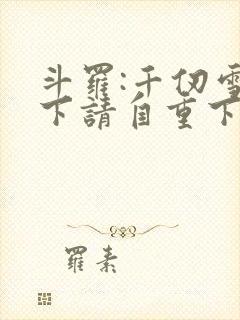 斗羅:千仞雪
下請自重下
羅素